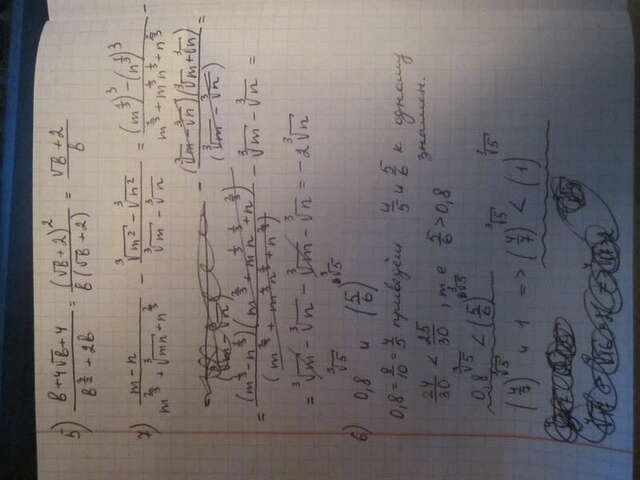 5) (b+4√b+4)/(b^(3/2)+2b) = (√b+2)²/(b(√b+2)) = (√b+2)/b
7) (m-n)/(m^(2/3)+∛mn+n^(2/3)) - (∛m²-∛n²)/(∛m-∛n) = ((m^(1/3))³-(n^(1/3))³)/(m^(2/3)+m^(1/3)n^(1/3)+n^(2/3)) -
- ((∛m-∛n)(∛m+∛n))/(∛m-∛n) =
= ((m^(1/3)-n^(1/3))(m^(2/3)+m^(1/3)n^(1/3)+n^(2/3)))/(m^(2/3)+m^(1/3)n^(1/3)+n^(2/3)) - ∛m-∛n =
= ∛m-∛n-∛m-∛n=-2∛n
6) 0,8^(∛5) и (5/6)^(∛5)
0,8=8/10=4/5 приведём 4/5 и 5/6 к одному
знамен.
24/30 < 25/30, т.е 5/6>0,8
0,8^(∛5) < (5/6)^(∛5)
(4/7)^(∛5) и 1 => (4/7)^(∛5) < (1)^(∛5)